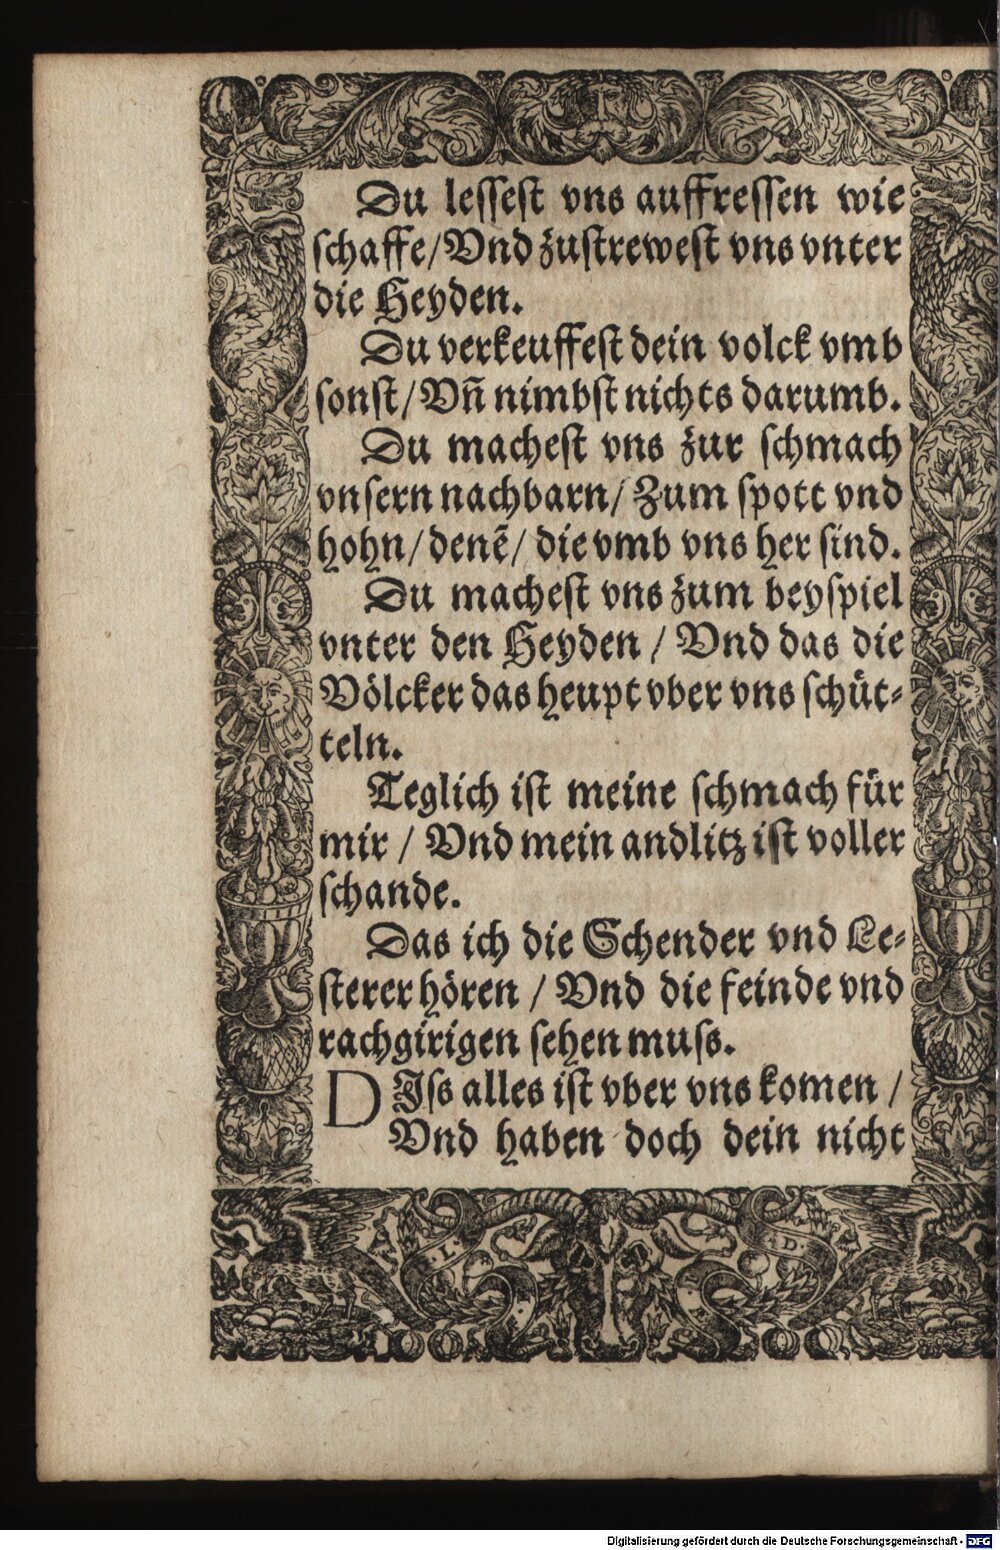 Du lessest vns auffressen wie
schaffe/Vnd zustrewest vns vnter
die Heyden.
Du verkeuffest dein volck vmb
sonst/Vñ nimbst nichts darumb.
Du machest vns zur schmach
vnsern nachbarn/Zum spott vnd
hohn/denẽ/die vmb vns her sind.
Du machest vns zum beyspiel
vnter den Heyden / Vnd das die
Völcker das heupt vber vns schüt-
teln.
Teglich ist meine schmach für
mir / Vnd mein andlitz ist voller
schande.
Das ich die Schender vnd Le-
sterer hören / Vnd die feinde vnd
rachgirigen sehen muss.
DIss alles ist vber vns komen /
Vnd haben doch dein nicht
L. D.
Digitalisierung gefördert durch die Deutsche Forschungsgemeinschaft - DFG